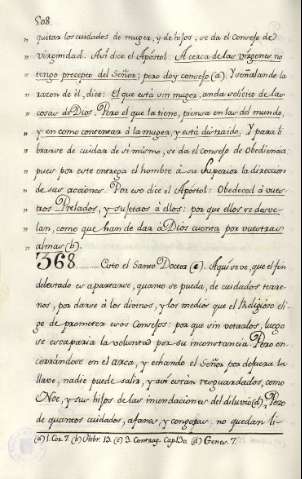 508
„ quitar los cuidados de muger, y de hijos, se da el Consejo de
„ virginidad. Asi dice el Apóstol: A cerca de las virgenes no
„ tengo precepto del Señor; pero doy consejo (a). Y señalando la
„ razon de él, dice: El que está sin muger, anda solicito de las
„ cosas de Dios. Pero el que la tiene, piensa en las del mundo,
„ y en como contentar à la muger, y está distraido. Y para li-
„ brarse de cuidar de sí mismo, se da el consejo de Obediencia:
„ pues por este entrega el hombre à su Superior la direccion
„ de sus acciones. Por eso dice el Apóstol: Obedeced à vues-
„ tros Prelados, y sujetaos à ellos: por que ellos se desve-
„ lan, como que han de dar à Dios cuenta por vuestras
„ almas (b).
368 Esto el Santo Doctor (c). Aqui se ve, que el fin
del estado es apartarse, quanto se pueda, de cuidados terre-
nos, por darse à los divinos, y los medios que el Religioso eli-
ge de prometer esos Consejos: por que sin votarlos, luego
se escaparia la voluntad por su inconstancia. Pero en-
cerrandose en el arca, y echando el Señor por defuera la
llave, nadie puede salir, y asi están resguardados, como
Noe, y sus hijos de las inundaciones del diluvio (d). Pero
de quantos cuidados, afanes, y congojas, no quedan li-
(a) 1. Cor. 7. (b) Hebr. 13. (c) 3. Contrag. Cap. 130. (d) Genes. 7.